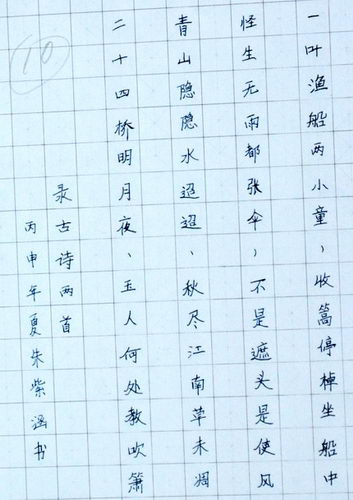 一叶渔船两小童、收篙停棹坐船中
怪生无雨都张伞、不是遮头是使风
青山隐隐水迢迢、秋尽江南草未凋
二十四桥明月夜、玉人何处教吹箫
录古诗两首
丙申年夏朱紫涵书
10